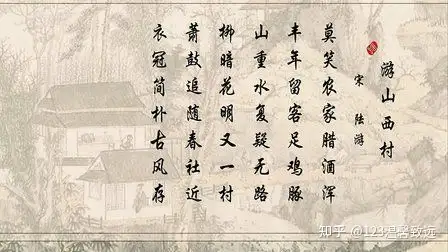 游山西村
宋 陆游
莫笑农家腊酒浑
丰年留客足鸡豚
山重水复疑无路
柳暗花明又一村
萧鼓追随春社近
衣冠简朴古风存
知乎 @123温馨致远